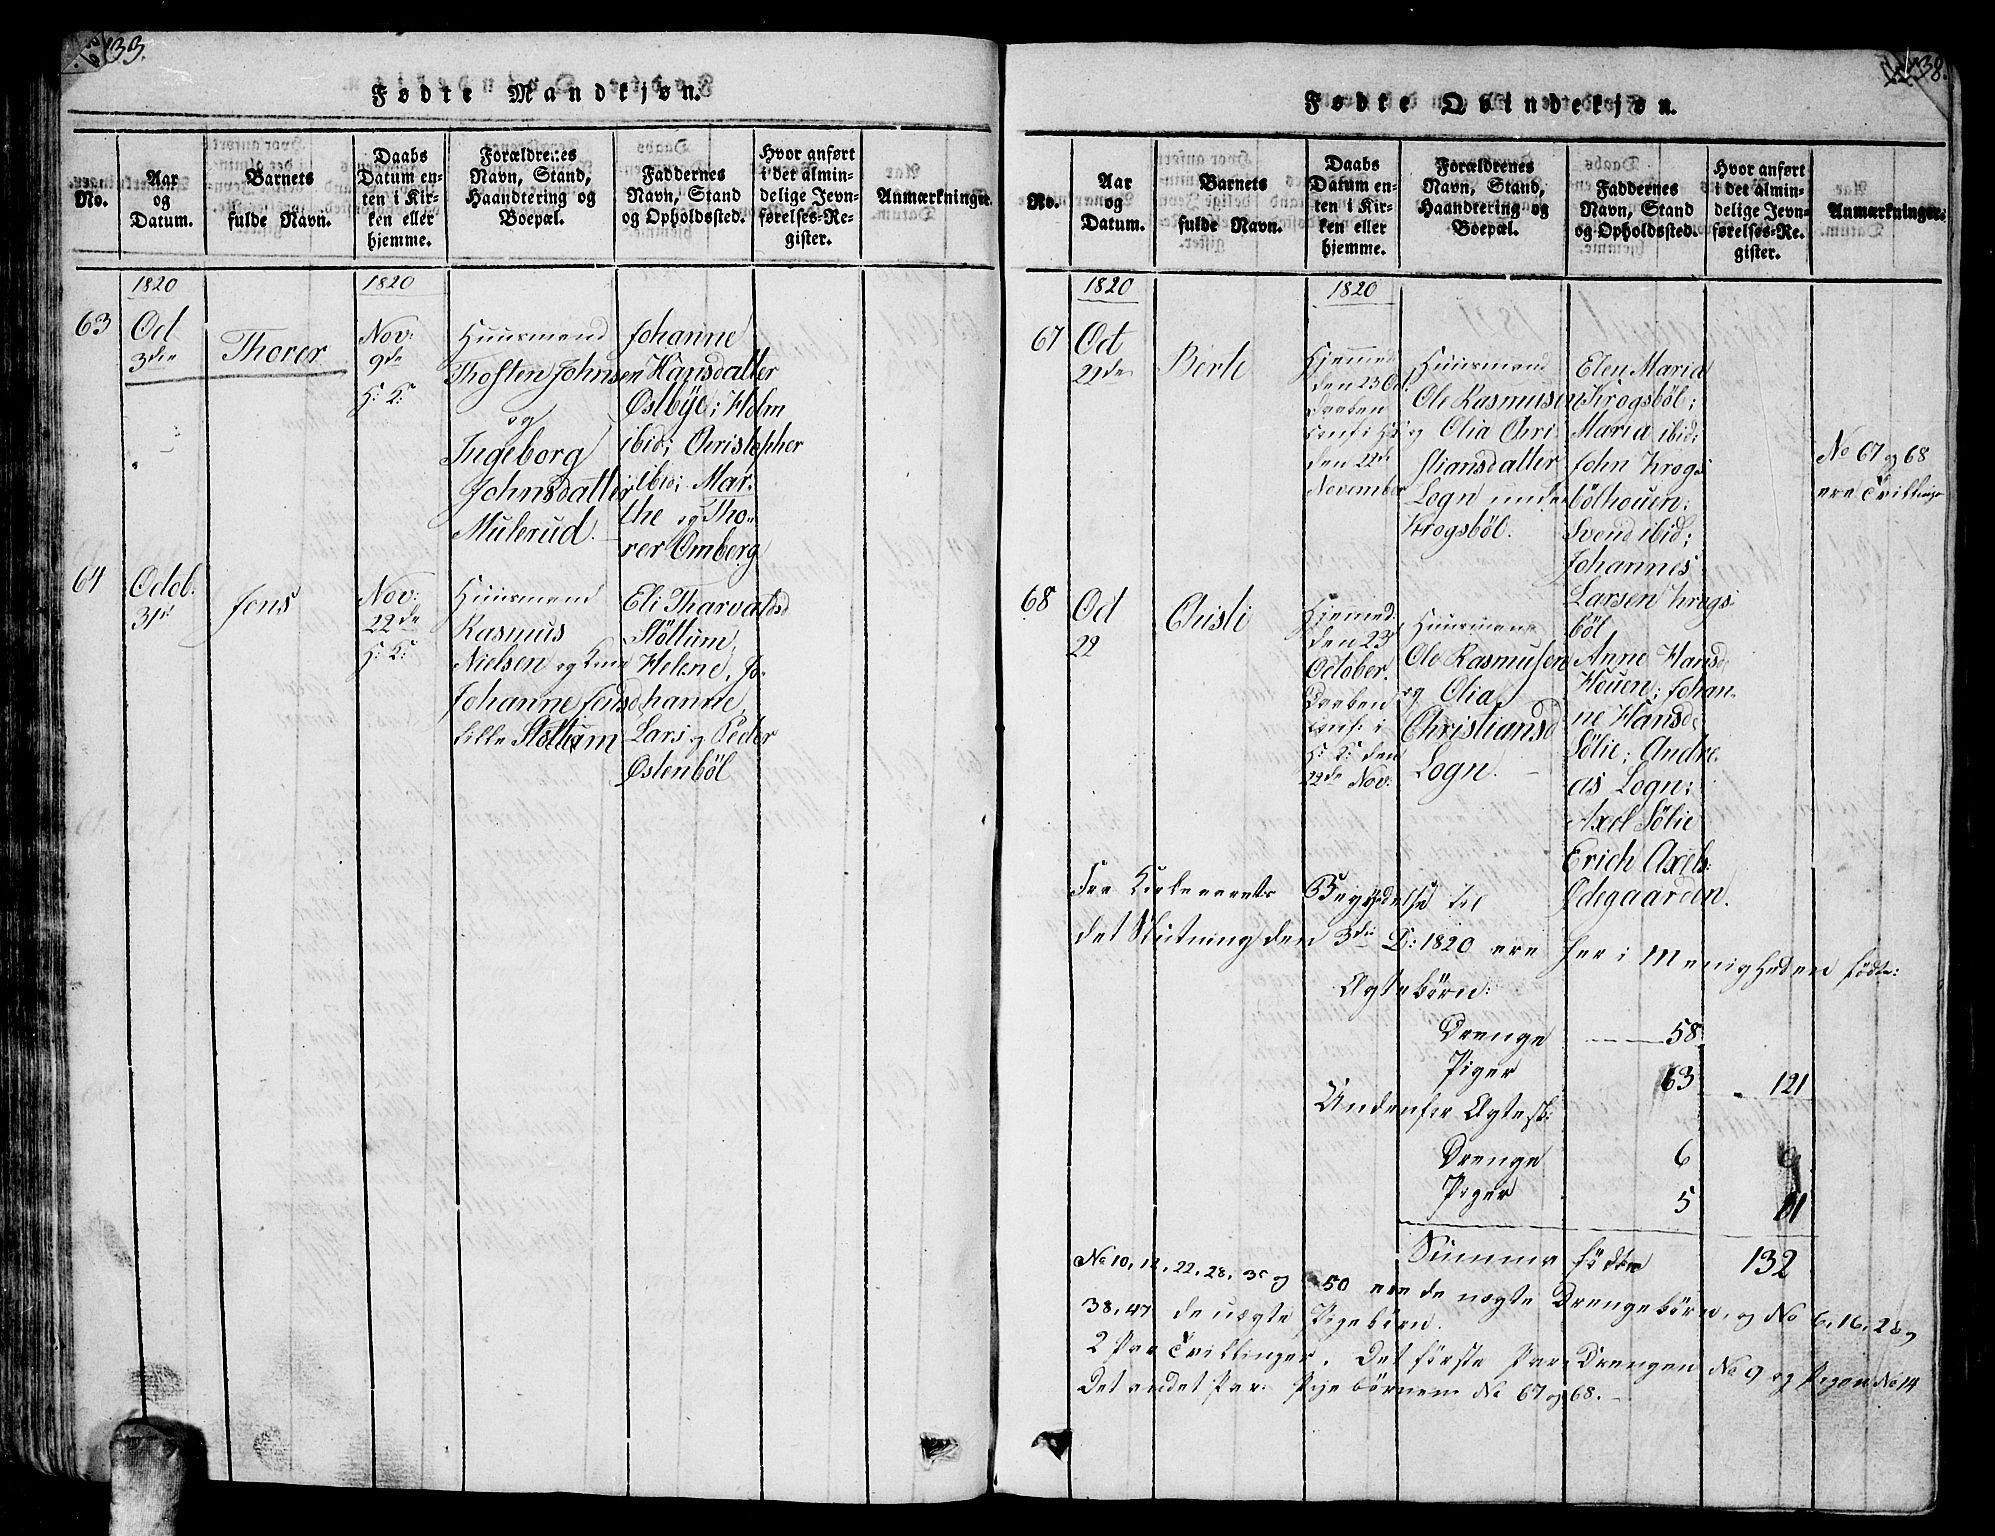 133.
Fødte Mandkjøn.
No.
Aar og Datum.
Barnets fulde Navn.
Daabs Datum enten i Kirken eller hjemme.
Forældrenes Navn, Stand, Haandtering og Boepæl.
Faddernes Navn, Stand og Opholdssted.
Hvor anført i det almindelige Jevnførelses-Register.
Anmærkninger.
1820
1820
63
Oct
3die
Thorer
Nov:
9de
H: K:
Huusmand
Thosten Johnsen
og
Ingeborg
Johnsdatter
Mulerud.
Johanne
Hansdatter
Østbye; Holm
ibid; Christopher
ibid; Mar-
the og Tho-
rer Omberg
64
Octob.
31te
Jens
Nov:
22de
H: K:
Huusmand
Rasmus
Nielsen og Kone
Johanne Jensd
lille Støttum
Eli Tharvalds
Støttum,
Helene, Jo-
hanne,
Lars og Peder
Østenbøl
138.
Fødte Qvindekjøn.
No.
Aar og Datum.
Barnets fulde Navn.
Daabs Datum enten i Kirken eller hjemme.
Forældrenes Navn, Stand, Haandtering og Boepæl.
Faddernes Navn, Stand og Opholdssted.
Hvor anført i det almindelige Jevnførelses-Register.
Anmærkninger.
1820
1820
67
Oct
22de
Berte
Hjemmed
den 23 Oct.
Daaben
conf: i H: K
den 22de
November
Huusmand
Ole Rasmusen
og Olia Chri
stiansdatter
Logn under
Krogsböl.
Elen Maria
Krogsböl;
Maria ibid;
John Krogs
bölhouen;
Svend ibid;
Johannes
Larsen Krogs
böl
No 67 og 68
ere Tvillinger
68
Oct
22
Ousti
Hjemmed
den 23
October.
Daaben
conf: i
H: K: den
22de Nov:
Huusmand
Ole Rasmusen
og Olia
Christiansd
Logn.
Anne Hansd
Houen; Johan-
ne Hansd
Sölie; Andre
as Logn;
Axel Sölie
Erich Axels:
Ødegaarden.
Fra Kirkeaarets Begyndelse til
det Slutning den 3die D: 1820 ere her i Menigheden fødte:
Ægtebörn:
Drenge 58
Piger 63 121
Undenfor Ægtesk:
Drenge 6
Piger 5 11
Summa födte 132
No 10, 12, 22, 28, 36 og 50 ere de uægte Drengebørn, og No 6, 16, 28,
38, 47 de uægte Pigebørn.
2 Par Tvillinger. Det første Par Drengen No 9 og Pigen No 14
Det andet Par: Pigebørnene No 67 og 68.